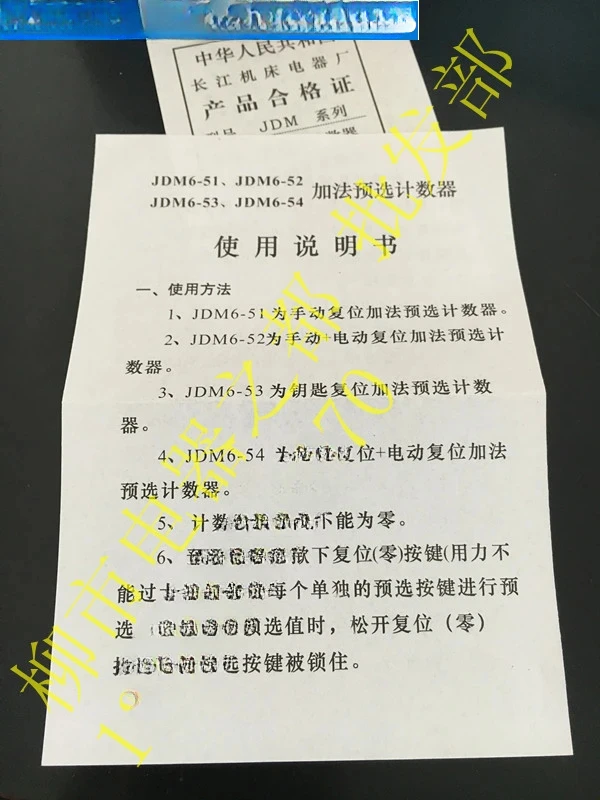 中华人民共和国
长江机床电器厂
产品合格证
JDM 系列
JDM6-51、JDM6-52
JDM6-53、JDM6-54 加法预选计数器
使用说明书
一、使用方法
1、JDM6-51为手动复位加法预选计数器。
2、JDM6-52为手动+电动复位加法预选计
数器。
3、JDM6-53为钥匙复位加法预选计数
器。
4、JDM6-54 复位+电动复位加法
预选计数器。
5、计数 不能为零。
6、 揿下复位(零)按键(用力不
能过 每个单独的预选按键进行预
选 选值时，松开复位（零）
按键被锁住。
柳市电器之都 批发部